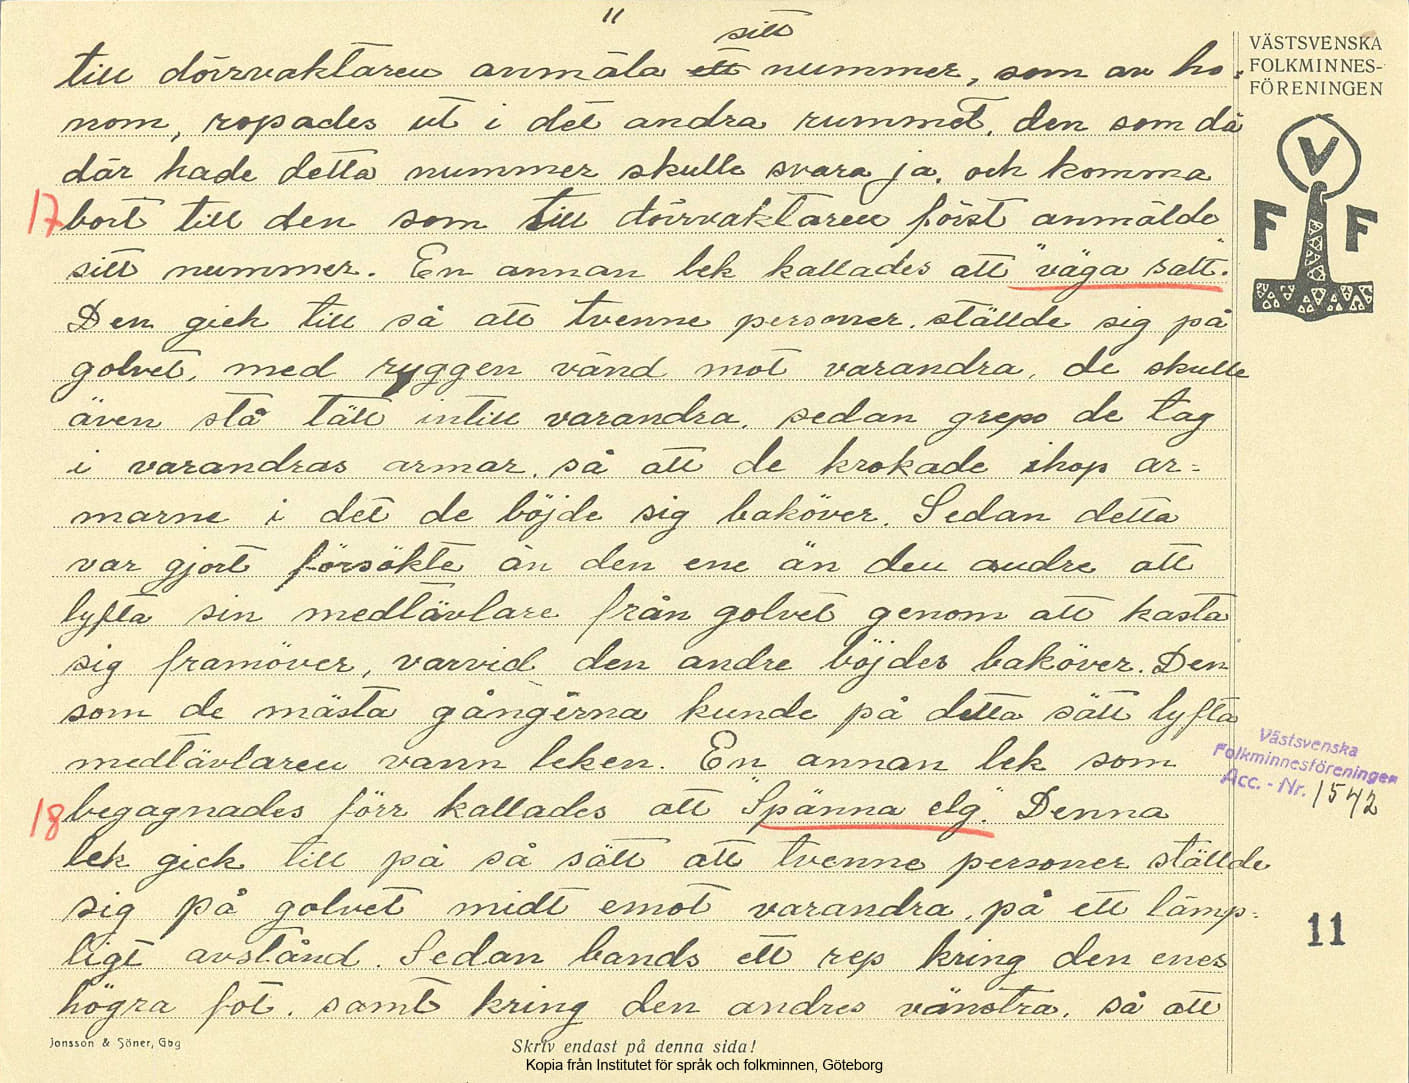 11
sitt
till dörrvaktaren anmäla ett nummer, som av ho-
nom, ropades ut i det andra rummet, den som då
där hade detta nummer skulle svara ja, och komma
17 bort till den som till dörrvaktaren först anmälde
sitt nummer. En annan lek kallades att "väga salt".
Den gick till så att tvenne personer, ställde sig på
golvet, med ryggen vänd mot varandra, de skulle
även stå tätt intill varandra, sedan grepo de tag
i varandras armar, så att de krokade ihop ar=
marne i det de böjde sig baköver. Sedan detta
var gjort försökte än den ene än den andre att
lyfta sin medtävlare från golvet genom att kasta
sig framöver, varvid den andre böjdes baköver. Den
som de mästa gångerna kunde på detta sätt lyfta
medtävlaren vann leken. En annan lek som
18 begagnades förr kallades att "Spänna elg". Denna
lek gick till på så sätt att tvenne personer ställde
sig på golvet midt emot varandra, på ett lämp=
ligt avstånd. Sedan bands ett rep kring den enes
högra fot, samt kring den andres vänstra, så att
VÄSTSVENSKA
FOLKMINNES-
FÖRENINGEN
V
F F
Västsvenska
Folkminnesföreningen
Acc. - Nr. 1542
11
Jonsson & Söner, Gbg
Skriv endast på denna sida!
Kopia från Institutet för språk och folkminnen, Göteborg